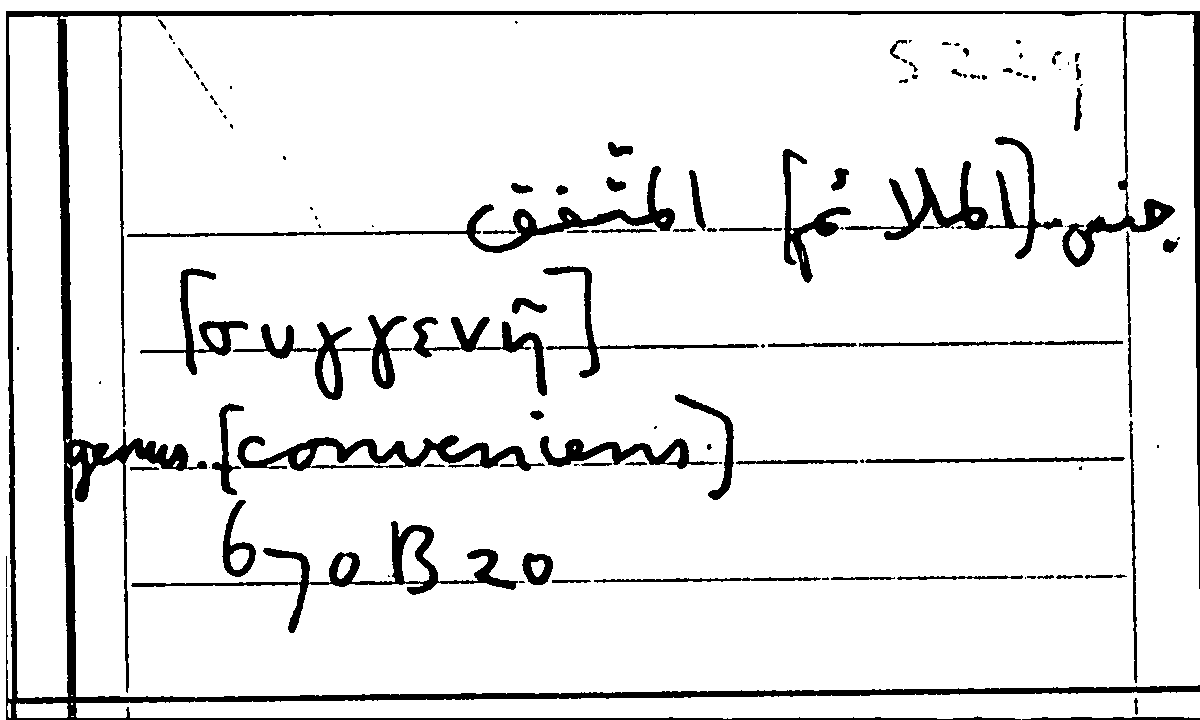 5229
جنس [الملائم] المتّفق
[συγγενῆ]
genus [conveniens]
670B20